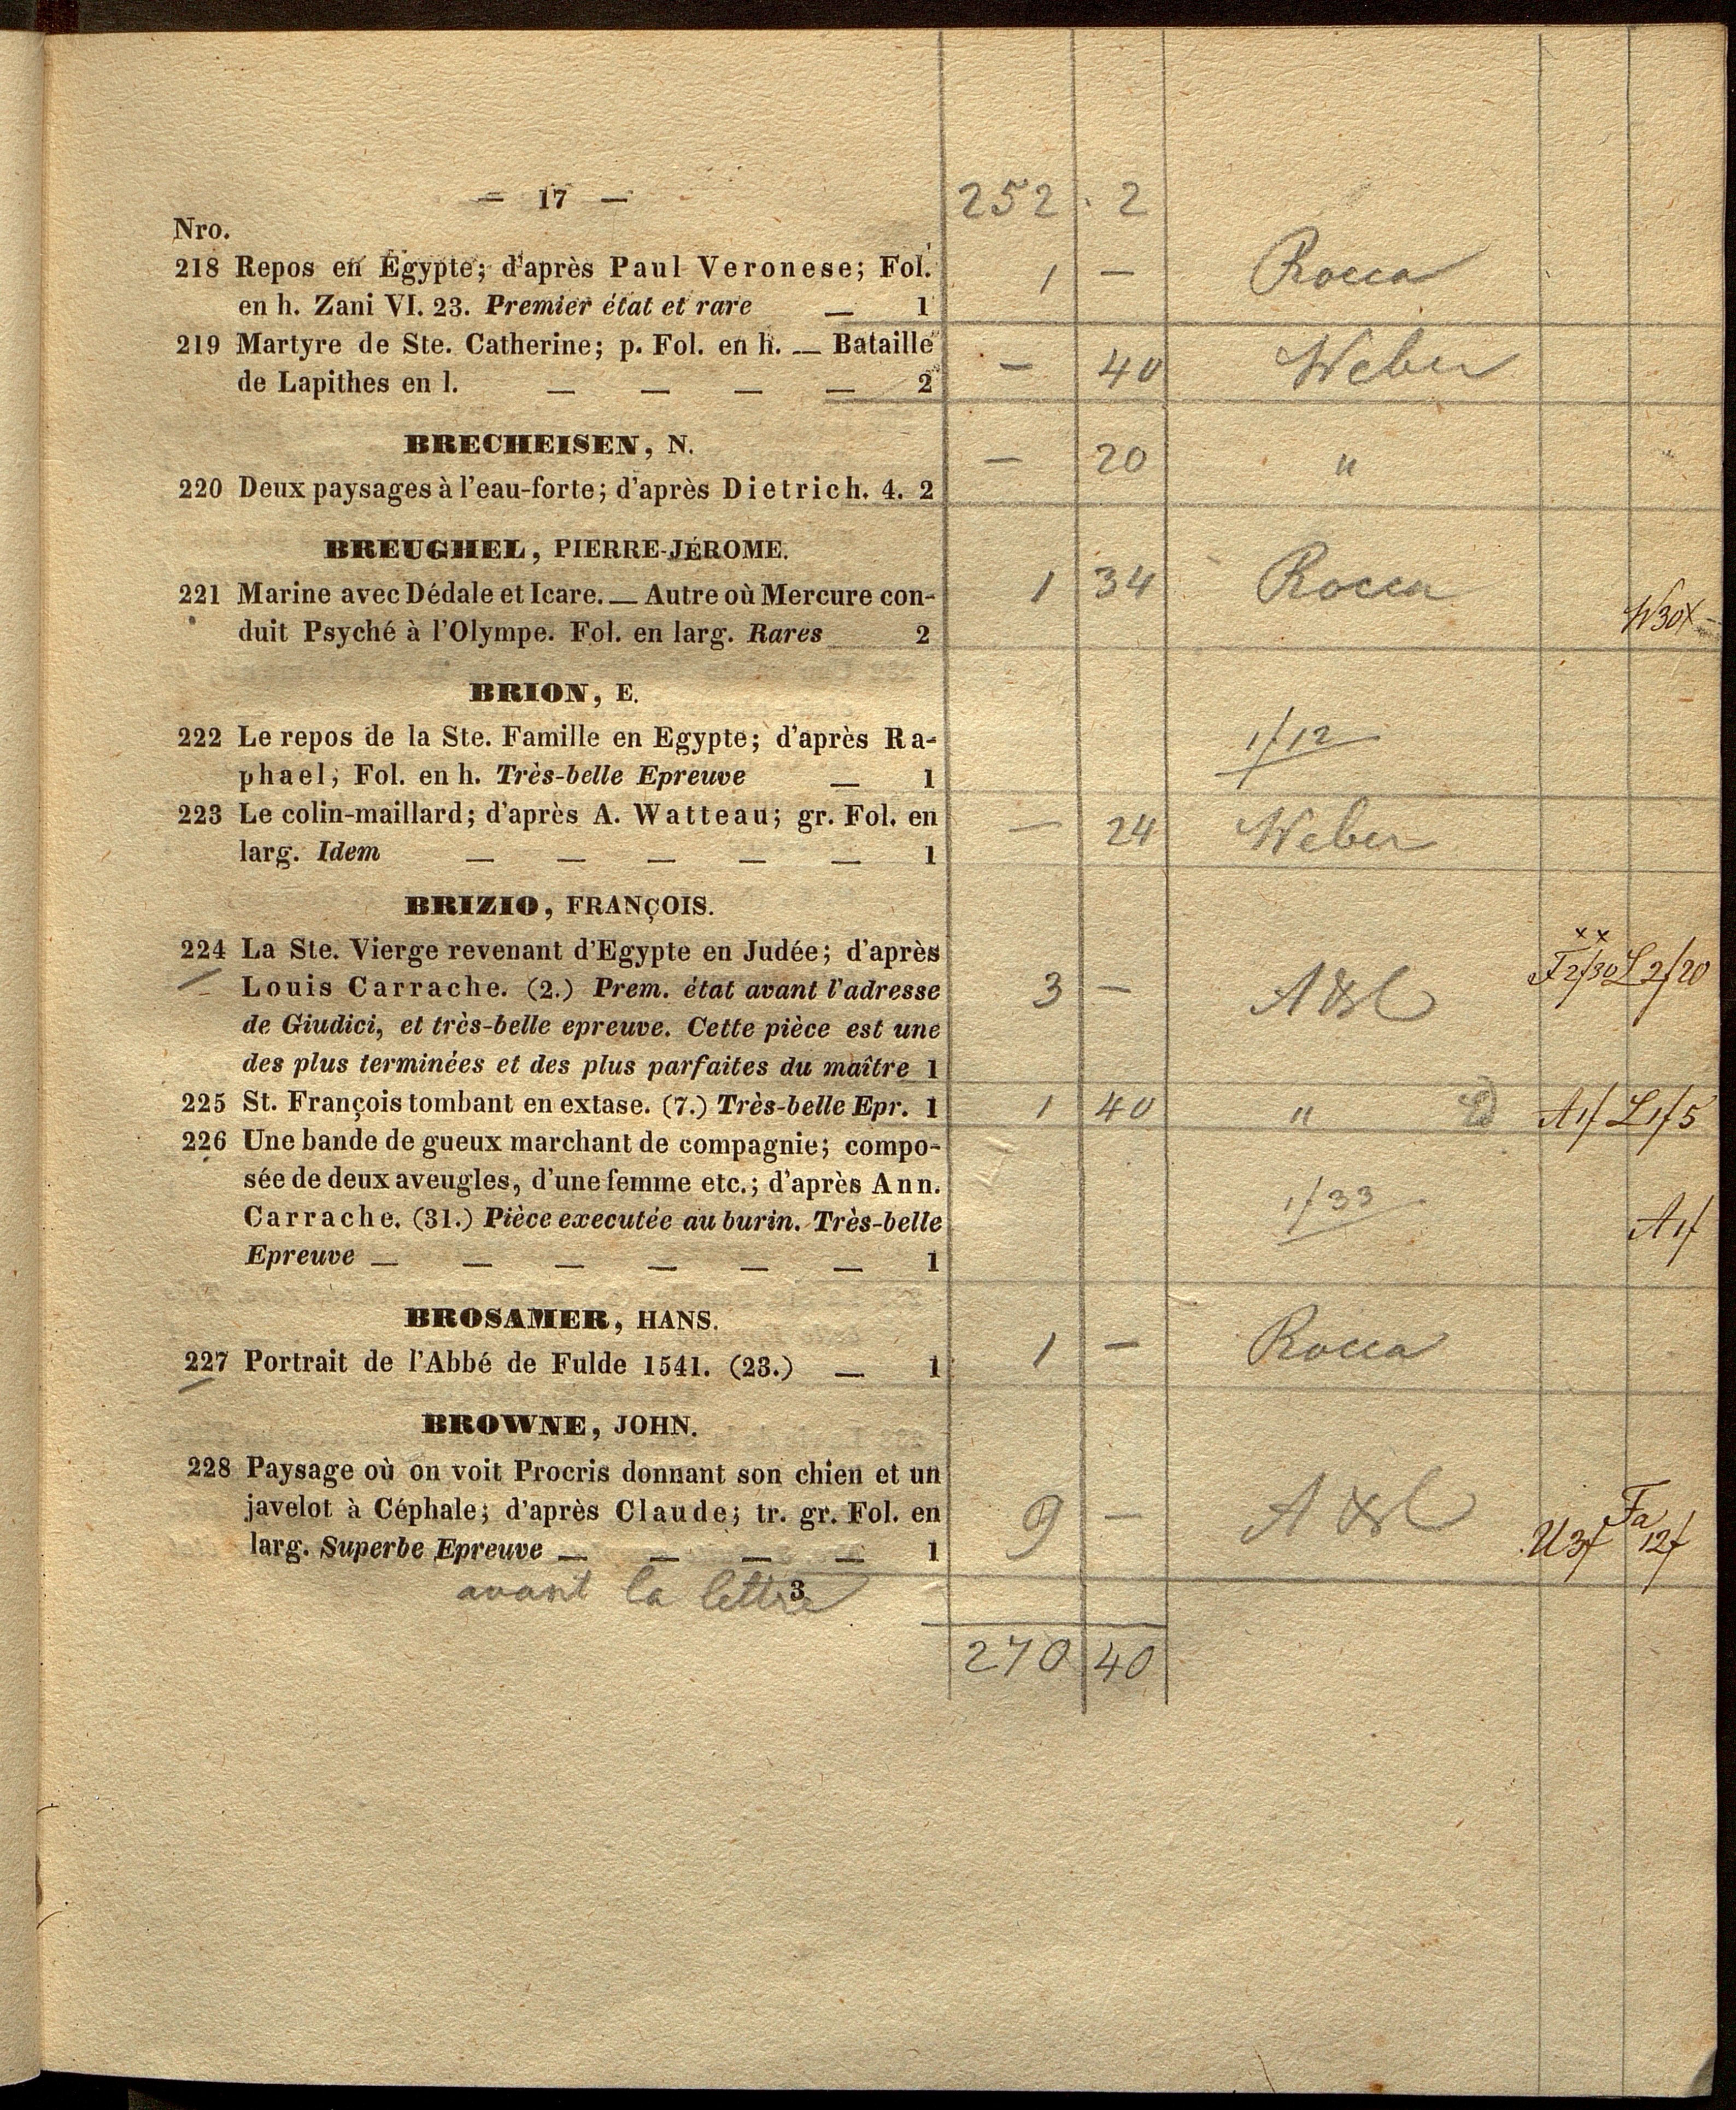 — 17 — 252 . 2
Nro.
218 Repos en Égypte; d'après Paul Veronese; Fol. 1 — Rocca
en h. Zani VI. 23. Premier état et rare — 1
219 Martyre de Ste. Catherine; p. Fol. en h. — Bataille — 40 Weber
de Lapithes en l. — — — — 2
BRECHEISEN, N.
— 20 "
220 Deux paysages à l'eau-forte; d'après Dietrich. 4. 2
BREUGHEL, PIERRE-JÉROME.
221 Marine avec Dédale et Icare. — Autre où Mercure con- 1 34 Rocca
duit Psyché à l'Olympe. Fol. en larg. Rares 2 W30x
BRION, E.
222 Le repos de la Ste. Famille en Egypte; d'après Ra- 1f12
phael; Fol. en h. Très-belle Epreuve — 1
223 Le colin-maillard; d'après A. Watteau; gr. Fol. en — 24 Weber
larg. Idem — — — — — 1
BRIZIO, FRANÇOIS.
224 La Ste. Vierge revenant d'Egypte en Judée; d'après x x
Louis Carrache. (2.) Prem. état avant l'adresse 3 — F2f30 L2f20
de Giudici, et très-belle epreuve. Cette pièce est une
des plus terminées et des plus parfaites du maître 1
225 St. François tombant en extase. (7.) Très-belle Epr. 1 1 40 " A1f L1f5
226 Une bande de gueux marchant de compagnie; compo-
sée de deux aveugles, d'une femme etc.; d'après Ann.
Carrache. (31.) Pièce executée au burin. Très-belle 1f33 A1f
Epreuve — — — — — — 1
BROSAMER, HANS.
227 Portrait de l'Abbé de Fulde 1541. (23.) — 1 1 — Rocca
BROWNE, JOHN.
228 Paysage où on voit Procris donnant son chien et un
javelot à Céphale; d'après Claude; tr. gr. Fol. en 9 — Fa
larg. Superbe Epreuve — — — — 1 U3f 12f
avant la lettre 3
270 40